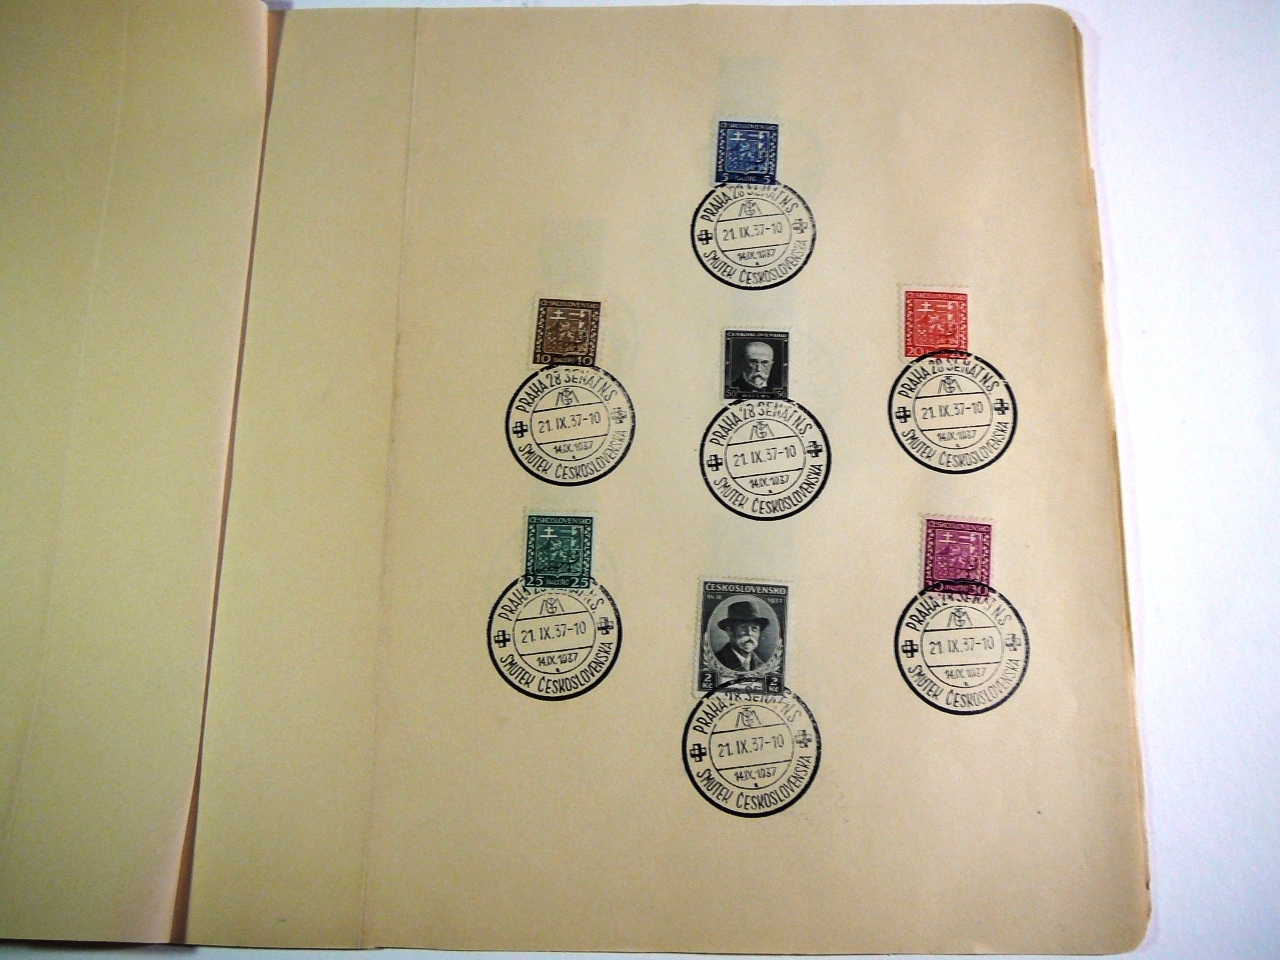 ČESKOSLOVENSKO
5 HALÉŘŮ 5
PRAHA 28 SENÁT N.S
21. IX. 37-10
14.IX.1937
SMUTEK ČESKOSLOVENSKA
ČESKOSLOVENSKO
10 HALÉŘŮ 10
PRAHA 28 SENÁT N.S
21. IX. 37-10
14.IX.1937
SMUTEK ČESKOSLOVENSKA
ČESKOSLOVENSKO
50 50
PRAHA 28 SENÁT N.S
21. IX. 37-10
14.IX.1937
SMUTEK ČESKOSLOVENSKA
ČESKOSLOVENSKO
20
PRAHA 28 SENÁT N.S
21. IX. 37-10
14.IX.1937
SMUTEK ČESKOSLOVENSKA
ČESKOSLOVENSKO
25 HALÉŘŮ 25
PRAHA 28 SENÁT N.S
21. IX. 37-10
14.IX.1937
SMUTEK ČESKOSLOVENSKA
ČESKOSLOVENSKO
14.IX. 1937
2 Kč 2 Kč
PRAHA 28 SENÁT N.S
21. IX. 37-10
14.IX.1937
SMUTEK ČESKOSLOVENSKA
ČESKOSLOVENSKO
30 HALÉŘŮ 30
PRAHA 28 SENÁT N.S
21. IX. 37-10
14.IX.1937
SMUTEK ČESKOSLOVENSKA